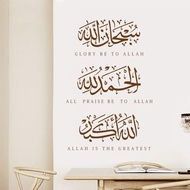 سبحان الله
GLORY BE TO ALLAH
الحمد لله
ALL PRAISE BE TO ALLAH
الله أكبر
ALLAH IS THE GREATEST